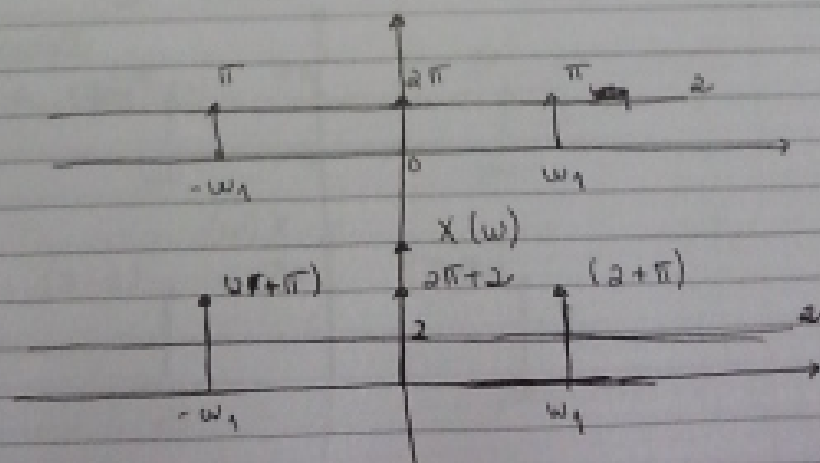 π 2π π 2
0
-ω₁ ω₁
X(ω)
(2+π) 2π+2 (2+π)
2 2
-ω₁ ω₁